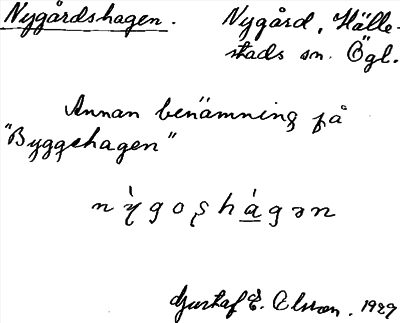 Nygårdshagen. Nygård, Hälle-
stads sn. Ögl.
Annan benämning på
"Byggehagen"
nỳgoʂhàgən
Gustaf E. Olsson. 1929